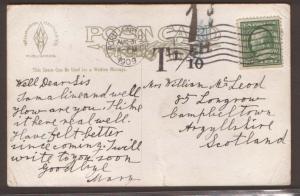 POST CARD
This Space Can Be Used for a Written Message.
1909
1d
T
10
Well Dear Sis
I am alive and well
How are you. I like
it here real well.
Have felt better
since coming. I will
write to you soon
Goodbye
Mary
Mrs William McLeod
85 Longrow
Campbeltown
Argyllshire
Scotland